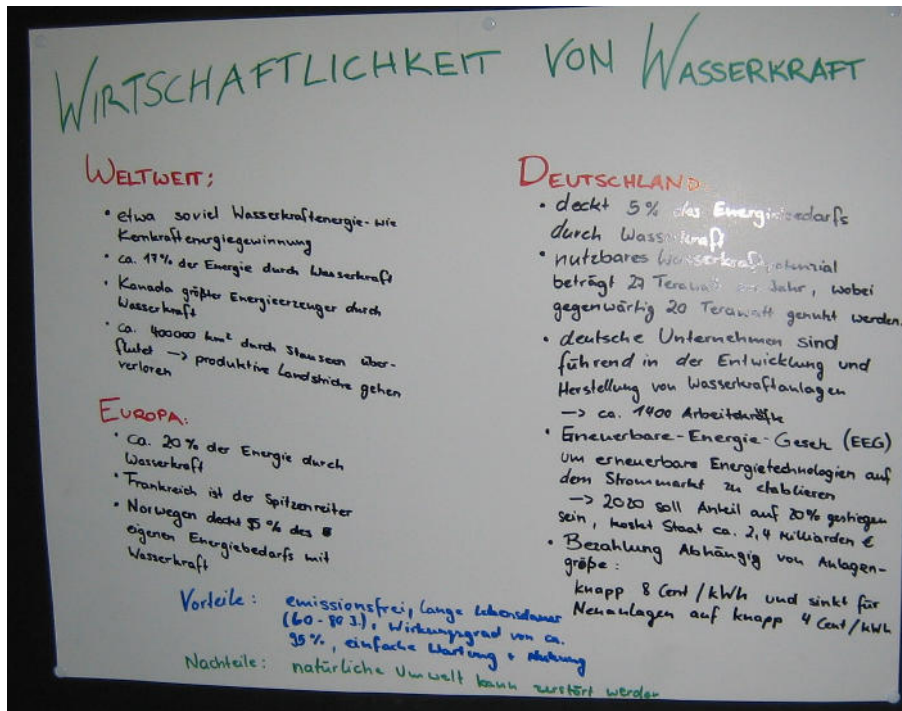 WIRTSCHAFTLICHKEIT VON WASSERKRAFT
WELTWEIT:
• etwa soviel Wasserkraftenergie- wie
Kernkraftenergiegewinnung
• ca. 17% der Energie durch Wasserkraft
• Kanada größter Energieerzeuger durch
Wasserkraft
• ca. 400000 km² durch Stauseen über-
flutet → produktive Landstriche gehen
verloren
EUROPA:
• ca. 20% der Energie durch
Wasserkraft
• Frankreich ist der Spitzenreiter
• Norwegen deckt % des
eigenen Energiebedarfs mit
Wasserkraft
DEUTSCHLAND:
• deckt 5% des Energiebedarfs
durch Wasserkraft
• nutzbares Wasserkraftpotenzial
beträgt 27 Terawatt Jahr, wobei
gegenwärtig 20 Terawatt genutzt werden.
• deutsche Unternehmen sind
führend in der Entwicklung und
Herstellung von Wasserkraftanlagen
→ ca. 1400 Arbeitskräfte
• Erneuerbare-Energie-Gesetz (EEG)
um erneuerbare Energietechnologien auf
dem Strommarkt zu etablieren
→ 2020 soll Anteil auf 20% gestiegen
sein, kostet Staat ca. 2,4 Milliarden €
• Bezahlung Abhängig von Anlagen-
größe:
knapp 8 Cent/kWh und sinkt für
Neuanlagen auf knapp 4 Cent/kWh
Vorteile: emissionsfrei, lange Lebensdauer
(60-80 J.), Wirkungsgrad von ca.
95%, einfache Wartung + Nutzung
Nachteile: natürliche Umwelt kann zerstört werden